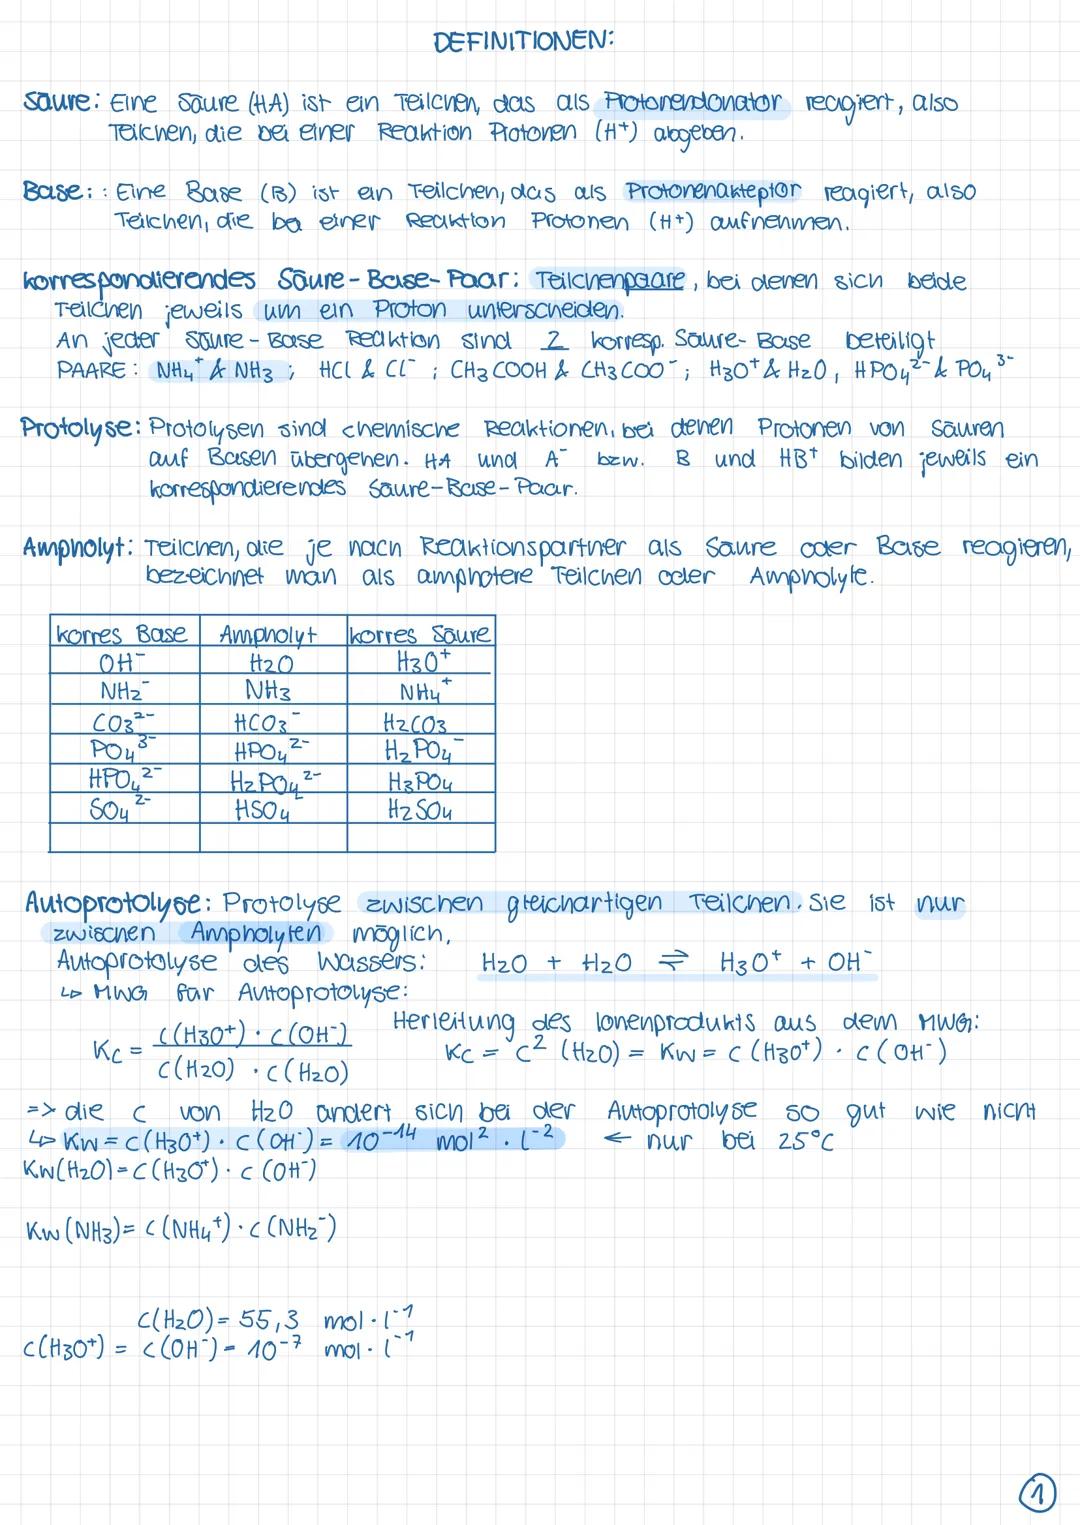 DEFINITIONEN:
Säure: Eine Säure (HA) ist ein Teilchen, das als Protonendonator reagiert, also
Teilchen, die bei einer Reaktion Protonen (H⁺) abgeben.
Base: : Eine Base (B) ist ein Teilchen, das als Protonenakteptor reagiert, also
Teilchen, die bei einer Reaktion Protonen (H+) aufnehmen.
korrespondierendes Säure-Base-Paar: Teilchenpaare, bei denen sich beide
Teilchen jeweils um ein Proton unterscheiden.
An jeder Säure-Base Reaktion sind 2 korresp. Säure-Base beteiligt
PAARE: NH₄⁺ & NH₃; HCl & Cl⁻; CH₃COOH & CH₃COO⁻; H₃O⁺ & H₂O, HPO₄²⁻ & PO₄³⁻
Protolyse: Protolysen sind chemische Reaktionen, bei denen Protonen von Säuren
auf Basen übergehen. HA und A⁻ bzw. B und HB⁺ bilden jeweils ein
korrespondierendes Säure-Base-Paar.
Ampholyt: Teilchen, die je nach Reaktionspartner als Säure oder Base reagieren,
bezeichnet man als amphotere Teilchen oder Ampholyte.
korres Base Ampholyt korres Säure
OH⁻ H₂O H₃O⁺
NH₂⁻ NH₃ NH₄⁺
CO₃²⁻ HCO₃⁻ H₂CO₃
PO₄³⁻ HPO₄²⁻ H₂PO₄⁻
HPO₄²⁻ H₂PO₄²⁻ H₃PO₄
SO₄²⁻ HSO₄⁻ H₂SO₄
Autoprotolyse: Protolyse zwischen gleichartigen Teilchen. Sie ist nur
zwischen Ampholyten möglich.
Autoprotolyse des Wassers: H₂O + H₂O ⇌ H₃O⁺ + OH⁻
↳ MWG für Autoprotolyse:
Kc = c(H₃O⁺) · c(OH⁻) / c(H₂O) · c(H₂O)
Herleitung des Ionenprodukts aus dem MWG:
Kc = c² (H₂O) = Kw = c (H₃O⁺) · c (OH⁻)
=> die c von H₂O ändert sich bei der Autoprotolyse so gut wie nicht
↳ Kw = c(H₃O⁺) · c(OH⁻) = 10⁻¹⁴ mol² · l⁻² ← nur bei 25°C
Kw(H₂O) = c(H₃O⁺) · c (OH⁻)
Kw (NH₃) = c (NH₄⁺) · c (NH₂⁻)
c(H₂O) = 55,3 mol · l⁻¹
c(H₃O⁺) = c(OH⁻) = 10⁻⁷ mol · l⁻¹
1